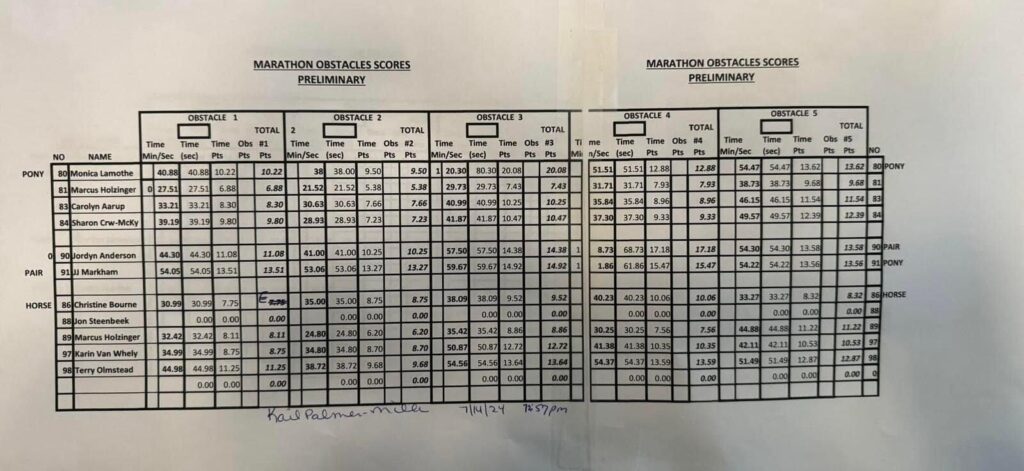 MARATHON OBSTACLES SCORES MARATHON OBSTACLES SCORES
PRELIMINARY PRELIMINARY
OBSTACLE 1 OBSTACLE 2 OBSTACLE 3 OBSTACLE 4 OBSTACLE 5
TOTAL 2 TOTAL TOTAL TOTAL TOTAL
Time Time Time Obs #1 Time Time Time Obs #2 Time Time Time Obs #3 Time Time Obs #4 Time Time Time Obs #5
NO NAME Min/Sec (sec) Pts Pts Min/Sec (sec) Pts Pts Min/Sec (sec) Pts Pts Min/Sec (sec) Pts Pts Min/Sec (sec) Pts Pts NO
PONY 80 Monica Lamothe 40.88 40.88 10.22 10.22 38 38.00 9.50 9.50 1 20.30 80.30 20.08 20.08 51.51 51.51 12.88 12.88 54.47 54.47 13.62 13.62 80 PONY
81 Marcus Holzinger 0 27.51 27.51 6.88 6.88 21.52 21.52 5.38 5.38 29.73 29.73 7.43 7.43 31.71 31.71 7.93 7.93 38.73 38.73 9.68 9.68 81
83 Carolyn Aarup 33.21 33.21 8.30 8.30 30.63 30.63 7.66 7.66 40.99 40.99 10.25 10.25 35.84 35.84 8.96 8.96 46.15 46.15 11.54 11.54 83
84 Sharon Crw-McKy 39.19 39.19 9.80 9.80 28.93 28.93 7.23 7.23 41.87 41.87 10.47 10.47 37.30 37.30 9.33 9.33 49.57 49.57 12.39 12.39 84
0 90 Jordyn Anderson 44.30 44.30 11.08 11.08 41.00 41.00 10.25 10.25 57.50 57.50 14.38 14.38 1 8.73 68.73 17.18 17.18 54.30 54.30 13.58 13.58 90 PAIR
PAIR 91 JJ Markham 54.05 54.05 13.51 13.51 53.06 53.06 13.27 13.27 59.67 59.67 14.92 14.92 1 1.86 61.86 15.47 15.47 54.22 54.22 13.56 13.56 91 PONY
HORSE 86 Christine Bourne 30.99 30.99 7.75 E 7.75 35.00 35.00 8.75 8.75 38.09 38.09 9.52 9.52 40.23 40.23 10.06 10.06 33.27 33.27 8.32 8.32 86 HORSE
88 Jon Steenbeek 0.00 0.00 0.00 0.00 0.00 0.00 0.00 0.00 0.00 0.00 0.00 0.00 0.00 0.00 0.00 88
89 Marcus Holzinger 32.42 32.42 8.11 8.11 24.80 24.80 6.20 6.20 35.42 35.42 8.86 8.86 30.25 30.25 7.56 7.56 44.88 44.88 11.22 11.22 89
97 Karin Van Whely 34.99 34.99 8.75 8.75 34.80 34.80 8.70 8.70 50.87 50.87 12.72 12.72 41.38 41.38 10.35 10.35 42.11 42.11 10.53 10.53 97
98 Terry Olmstead 44.98 44.98 11.25 11.25 38.72 38.72 9.68 9.68 54.56 54.56 13.64 13.64 54.37 54.37 13.59 13.59 51.49 51.49 12.87 12.87 98
0.00 0.00 0.00 0.00 0.00 0.00 0.00 0.00 0.00 0.00 0.00 0.00 0.00 0.00 0.00 0
7/14/24